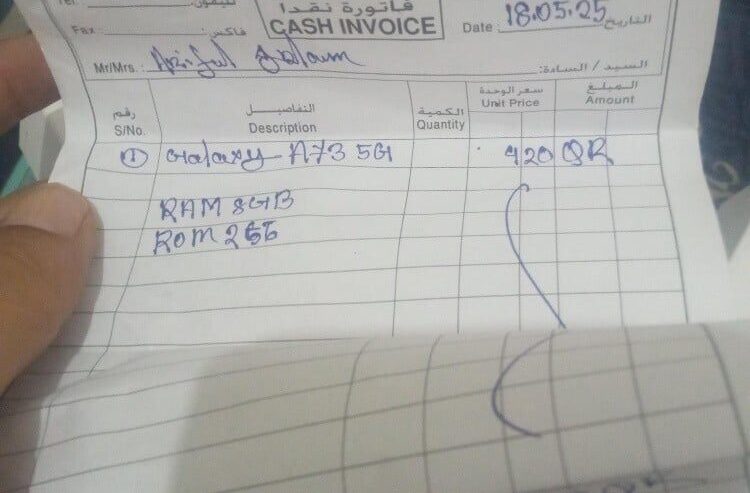 Tel: تليفون:
فاتورة نقدا
CASH INVOICE
Fax: فاكس:
Date 18.05.25 التاريخ
Mr/Mrs.: السيد / السادة:
رقم التفاصيل الكمية سعر الوحدة المبلغ
S/No. Description Quantity Unit Price Amount
① Galaxy-A73 5G 920 QR
RAM 8GB
ROM 256